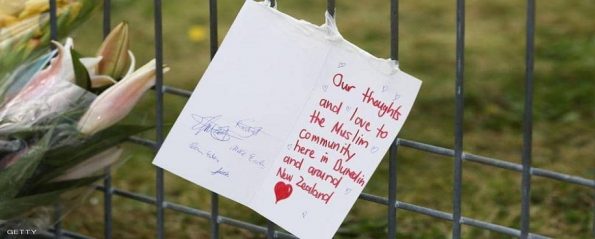 Our thoughts
and love to
the Muslim
community
here in Dunedin
and around
New Zealand
GETTY